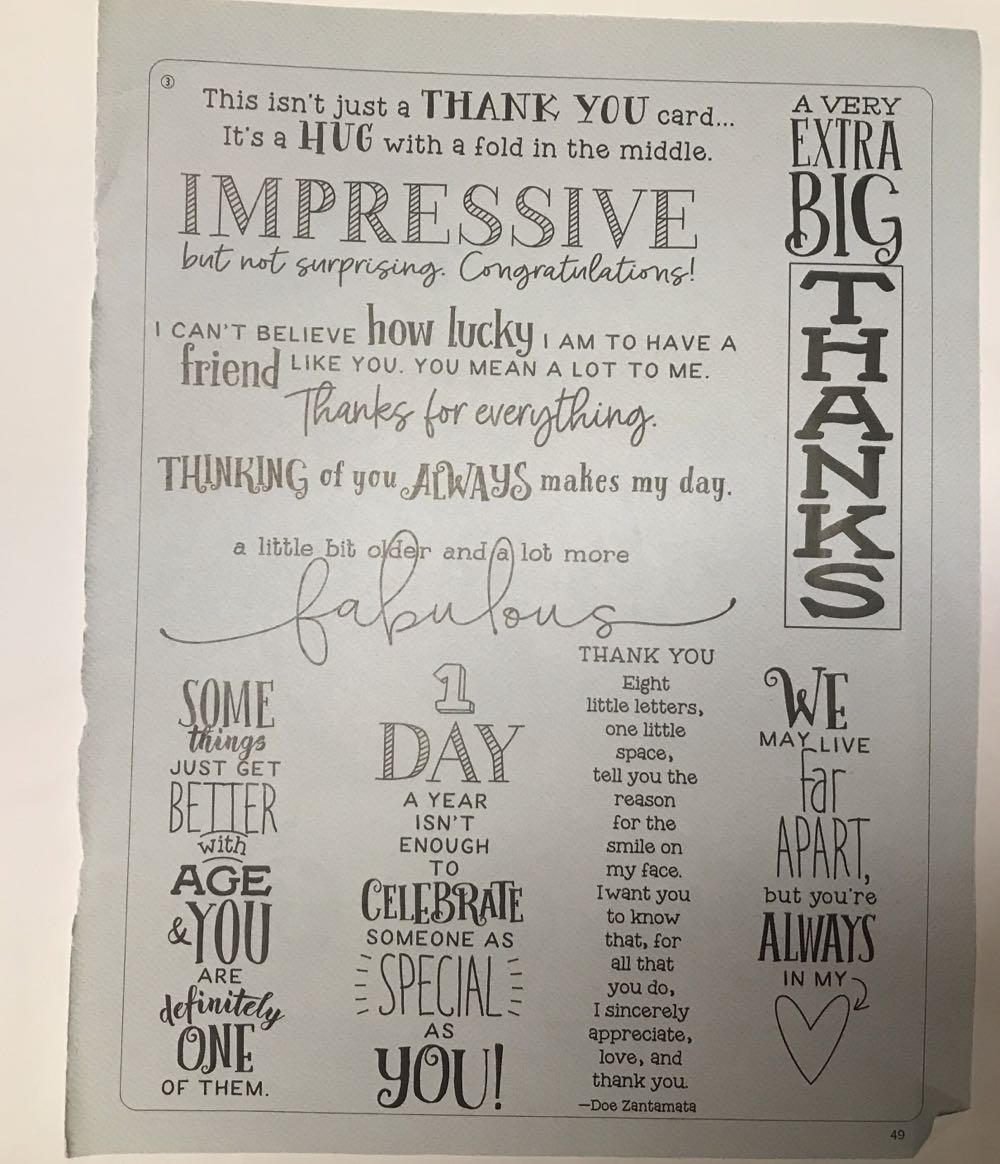 ③
This isn't just a THANK YOU card...
It's a HUG with a fold in the middle.
IMPRESSIVE
but not surprising. Congratulations!
I CAN'T BELIEVE how lucky I AM TO HAVE A
friend LIKE YOU. YOU MEAN A LOT TO ME.
Thanks for everything.
THINKING of you ALWAYS makes my day.
a little bit older and a lot more
fabulous
A VERY
EXTRA
BIG
THANKS
SOME
things
JUST GET
BETTER
with
AGE
& YOU
ARE
definitely
ONE
OF THEM.
1
DAY
A YEAR
ISN'T
ENOUGH
TO
CELEBRATE
SOMEONE AS
SPECIAL
AS
YOU!
THANK YOU
Eight
little letters,
one little
space,
tell you the
reason
for the
smile on
my face.
I want you
to know
that, for
all that
you do,
I sincerely
appreciate,
love, and
thank you.
—Doe Zantamata
WE
MAY LIVE
far
APART,
but you're
ALWAYS
IN MY
49